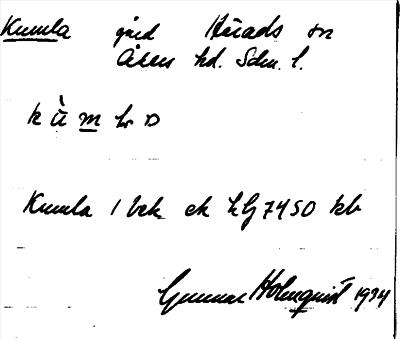 Kumla gård Husads sn
Åkers hd. Sdm. l.
k ù m l a
Kumla 1 bek ek hlj 7450 kb
Gunnar Holmquist 1934